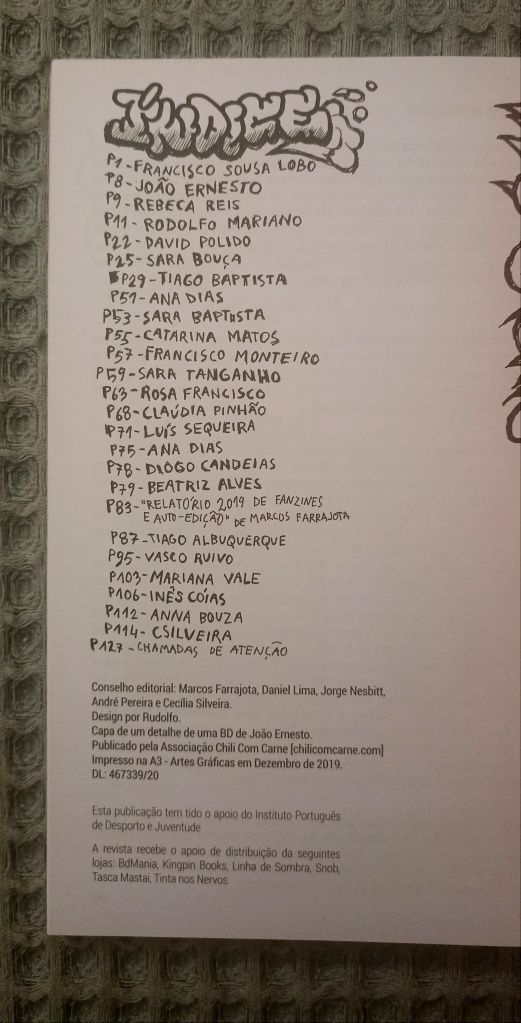 ÍNDICE
P1-FRANCISCO SOUSA LOBO
P8-JOÃO ERNESTO
P9-REBECA REIS
P11-RODOLFO MARIANO
P22-DAVID POLIDO
P25-SARA BOUÇA
P29-TIAGO BAPTISTA
P51-ANA DIAS
P53-SARA BAPTISTA
P55-CATARINA MATOS
P57-FRANCISCO MONTEIRO
P59-SARA TANGANHO
P63-ROSA FRANCISCO
P68-CLAÚDIA PINHÃO
P71-LUÍS SEQUEIRA
P75-ANA DIAS
P78-DIOGO CANDEIAS
P79-BEATRIZ ALVES
P83-"RELATÓRIO 2019 DE FANZINES
E AUTO-EDIÇÃO" DE MARCOS FARRAJOTA
P87-TIAGO ALBUQUERQUE
P95-VASCO RUIVO
P103-MARIANA VALE
P106-INÊS CÓIAS
P112-ANNA BOUZA
P114-CSILVEIRA
P127-CHAMADAS DE ATENÇÃO
Conselho editorial: Marcos Farrajota, Daniel Lima, Jorge Nesbitt,
André Pereira e Cecília Silveira.
Design por Rudolfo.
Capa de um detalhe de uma BD de João Ernesto.
Publicado pela Associação Chili Com Carne [chilicomcarne.com]
Impresso na A3 - Artes Gráficas em Dezembro de 2019.
DL: 467339/20
Esta publicação tem tido o apoio do Instituto Português
de Desporto e Juventude
A revista recebe o apoio de distribuição da seguintes
lojas: BdMania, Kingpin Books, Linha de Sombra, Snob,
Tasca Mastai, Tinta nos Nervos